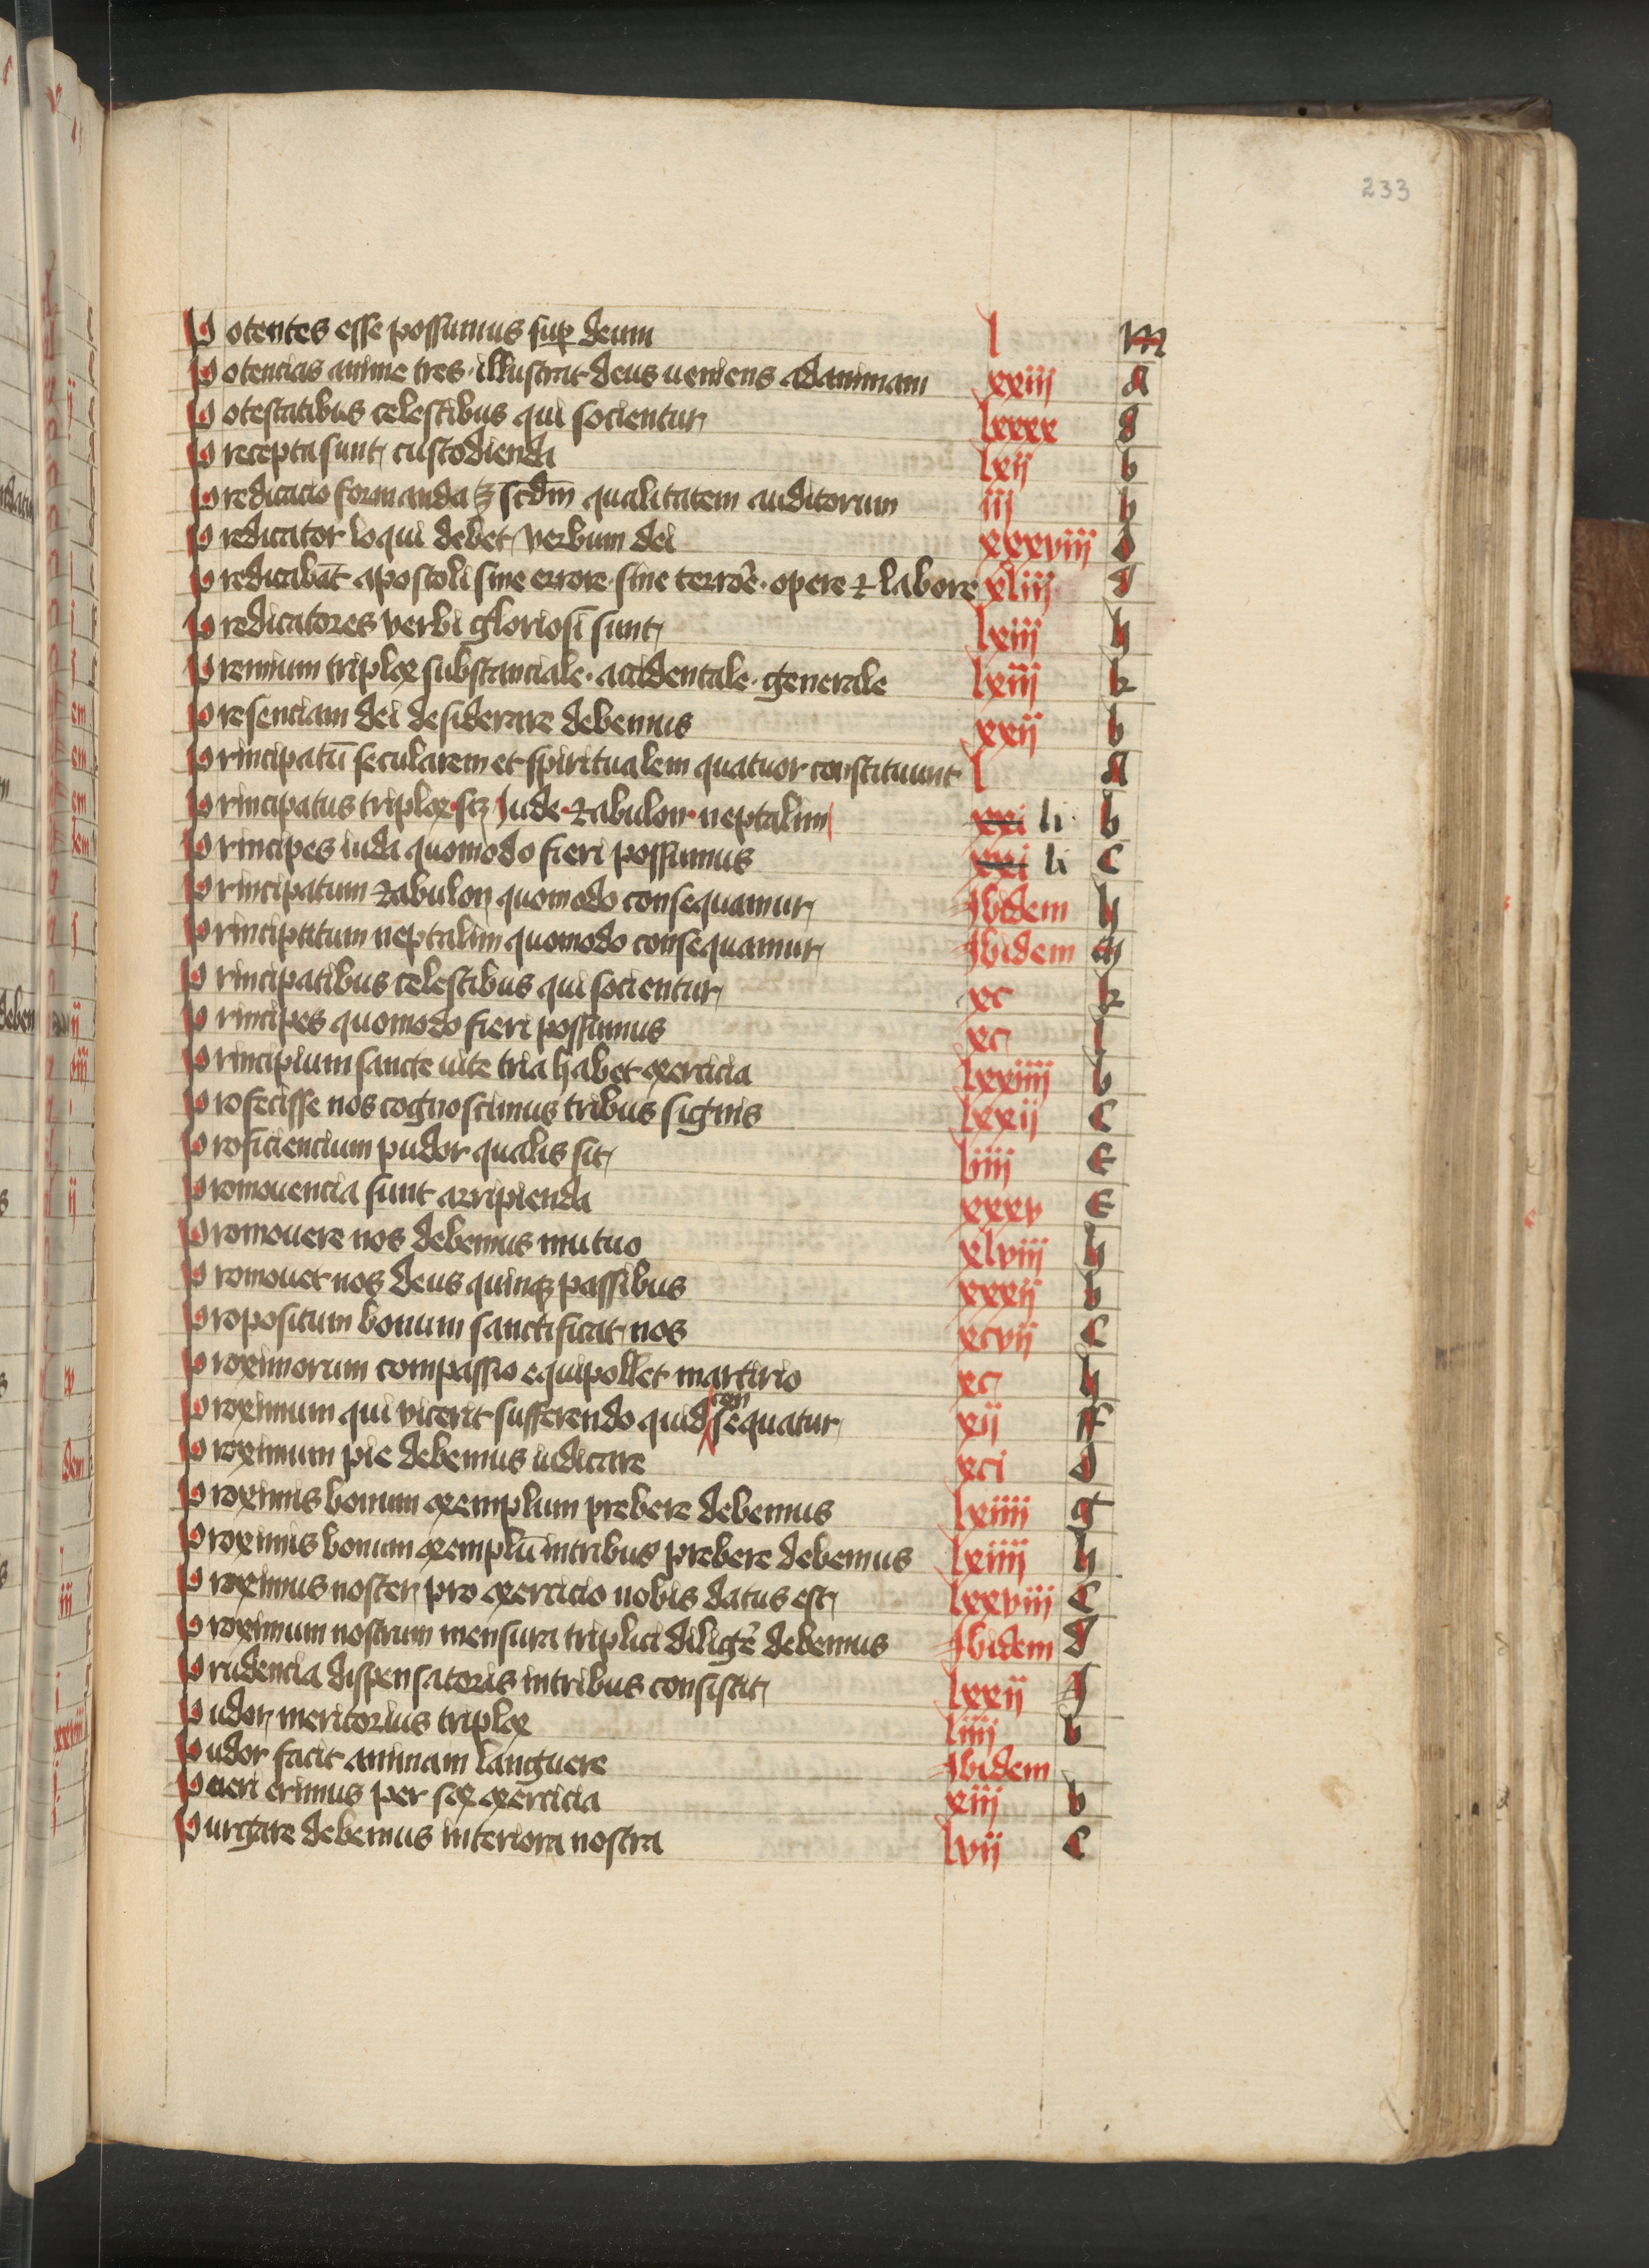 233
Potentes esse possumus sup deum l m
Potencias anime tres · illustrat deus veniens ad animam xxiij A
Potestatibus celestibus qui socientur lxxxx g
Precepta sunt custodienda lxij b
Predicacio formanda ꝫ scdm̄ qualitatem auditorum iij h
Predicator loqui debet verbum dei xxxviij d
Predicabāt apostoli sine errore · sine terrōe · opere ⁊ labore xliij g
Predicatores verbi gloriosi sunt lxiij h
Premium triplex substanciale · accidentale · generale lxiij k
Presenciam dei desiderare debemus xxij b
Principatū secularem et spiritualem quatuor constituunt l A
Principatus triplex · scꝫ Jude · zabulon · neptalim xxi li b
Principes iuda quomodo fieri possumus xxi li C
Principatum zabulon quomodo consequamur Ibidem h
Principatum neptalim quomodo consequamur Ibidem m
Principatibus celestibus qui socientur xc k
Principes quomodo fieri possumus xc l
Principium sancte vite tria habet exercicia lxxiiij b
Profecisse nos cognoscimus tribus signis lxxij C
Proficiencium pudor qualis sit liiij E
Promouencia sunt arripienda xxxv E
Promouere nos debemus mutuo xlviij h
Promouet nos deus quinqꝫ passibus xxxij b
Propositum bonum sanctificat nos xcvij C
Proximorum compassio equipollet martirio xc h
Proximum qui vicerit sufferendo quid consequatur xij F
Proximum pie debemus iudicare xci d
Proximis bonum exemplum prebere debemus lxiiij g
Proximis bonum exemplū in tribus prebere debemus lxiiij h
Proximus noster pro exercicio nobis datus est lxxviij C
Proximum nostrum mensura triplici diligēe debemus Ibidem d
Prudencia dispensatoris in tribus consistit lxxij g
Pudor meritorius triplex liiij b
Pudor facit animam languere Ibidem
Pueri erimus per sex exercicia xiij b
Purgare debemus interiora nostra lvij C